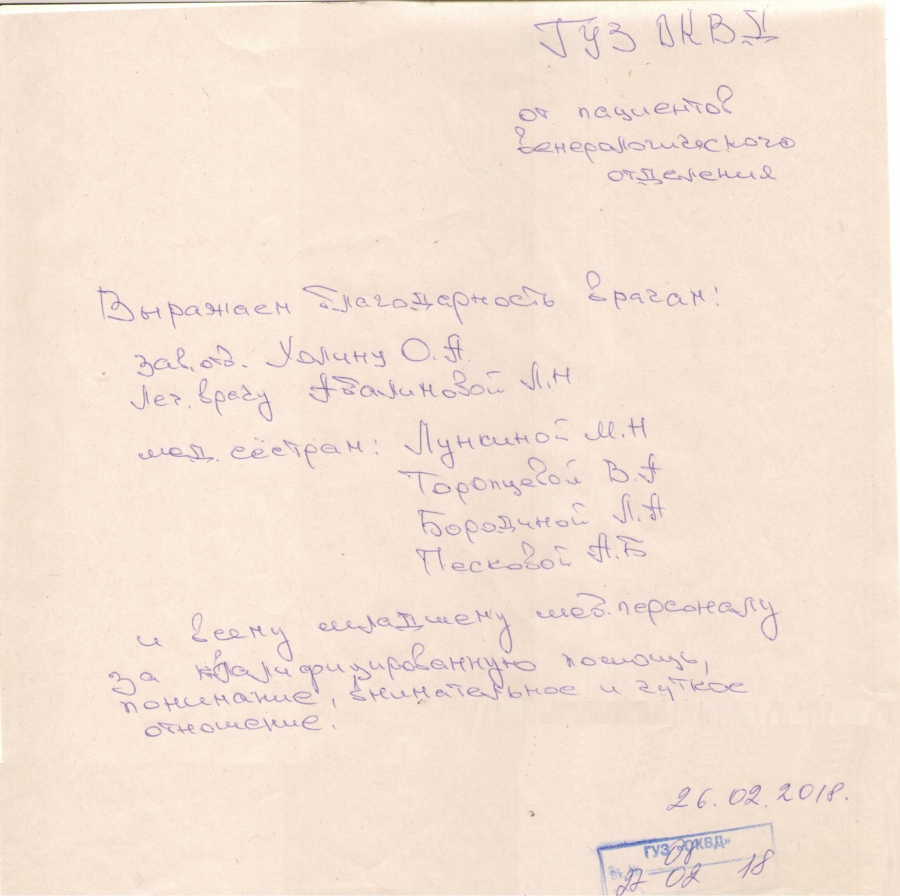 ГУЗ ОКВД
от пациентов
венерологического
отделения
Выражаем благодарность врачам!
зав.отд. Холину О.А.
Леч. врачу Абалимовой Л.Н
мед. сёстрам: Лункиной М.Н
Торопцевой В.А
Бородиной Л.А
Песковой А.Б
и всему младшему мед.персоналу
за квалифицированную помощь,
понимание, внимательное и чуткое
отношение.
26.02.2018.
ГУЗ «ОКВД»
Вх.№
27 02 18